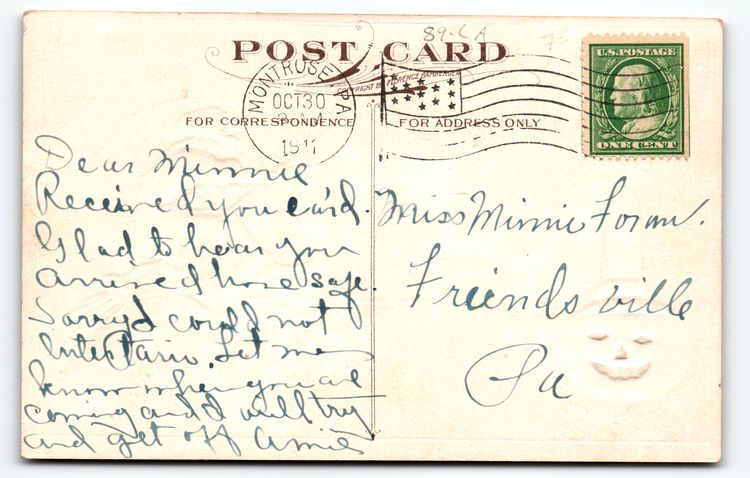 89-CA
POST CARD
COPYRIGHT BY FLORENCE BAMBERGER
MONTROSE, PA.
OCT 30
1911
U.S. POSTAGE
ONE CENT
FOR CORRESPONDENCE
FOR ADDRESS ONLY
Dear Minnie
Received you card.
Glad to hear you
arrived home safe.
Sorry I could not
entertain. Let me
know when you are
coming and I will try
and get off Amie
Miss Minnie Foran.
Friendsville
Pa